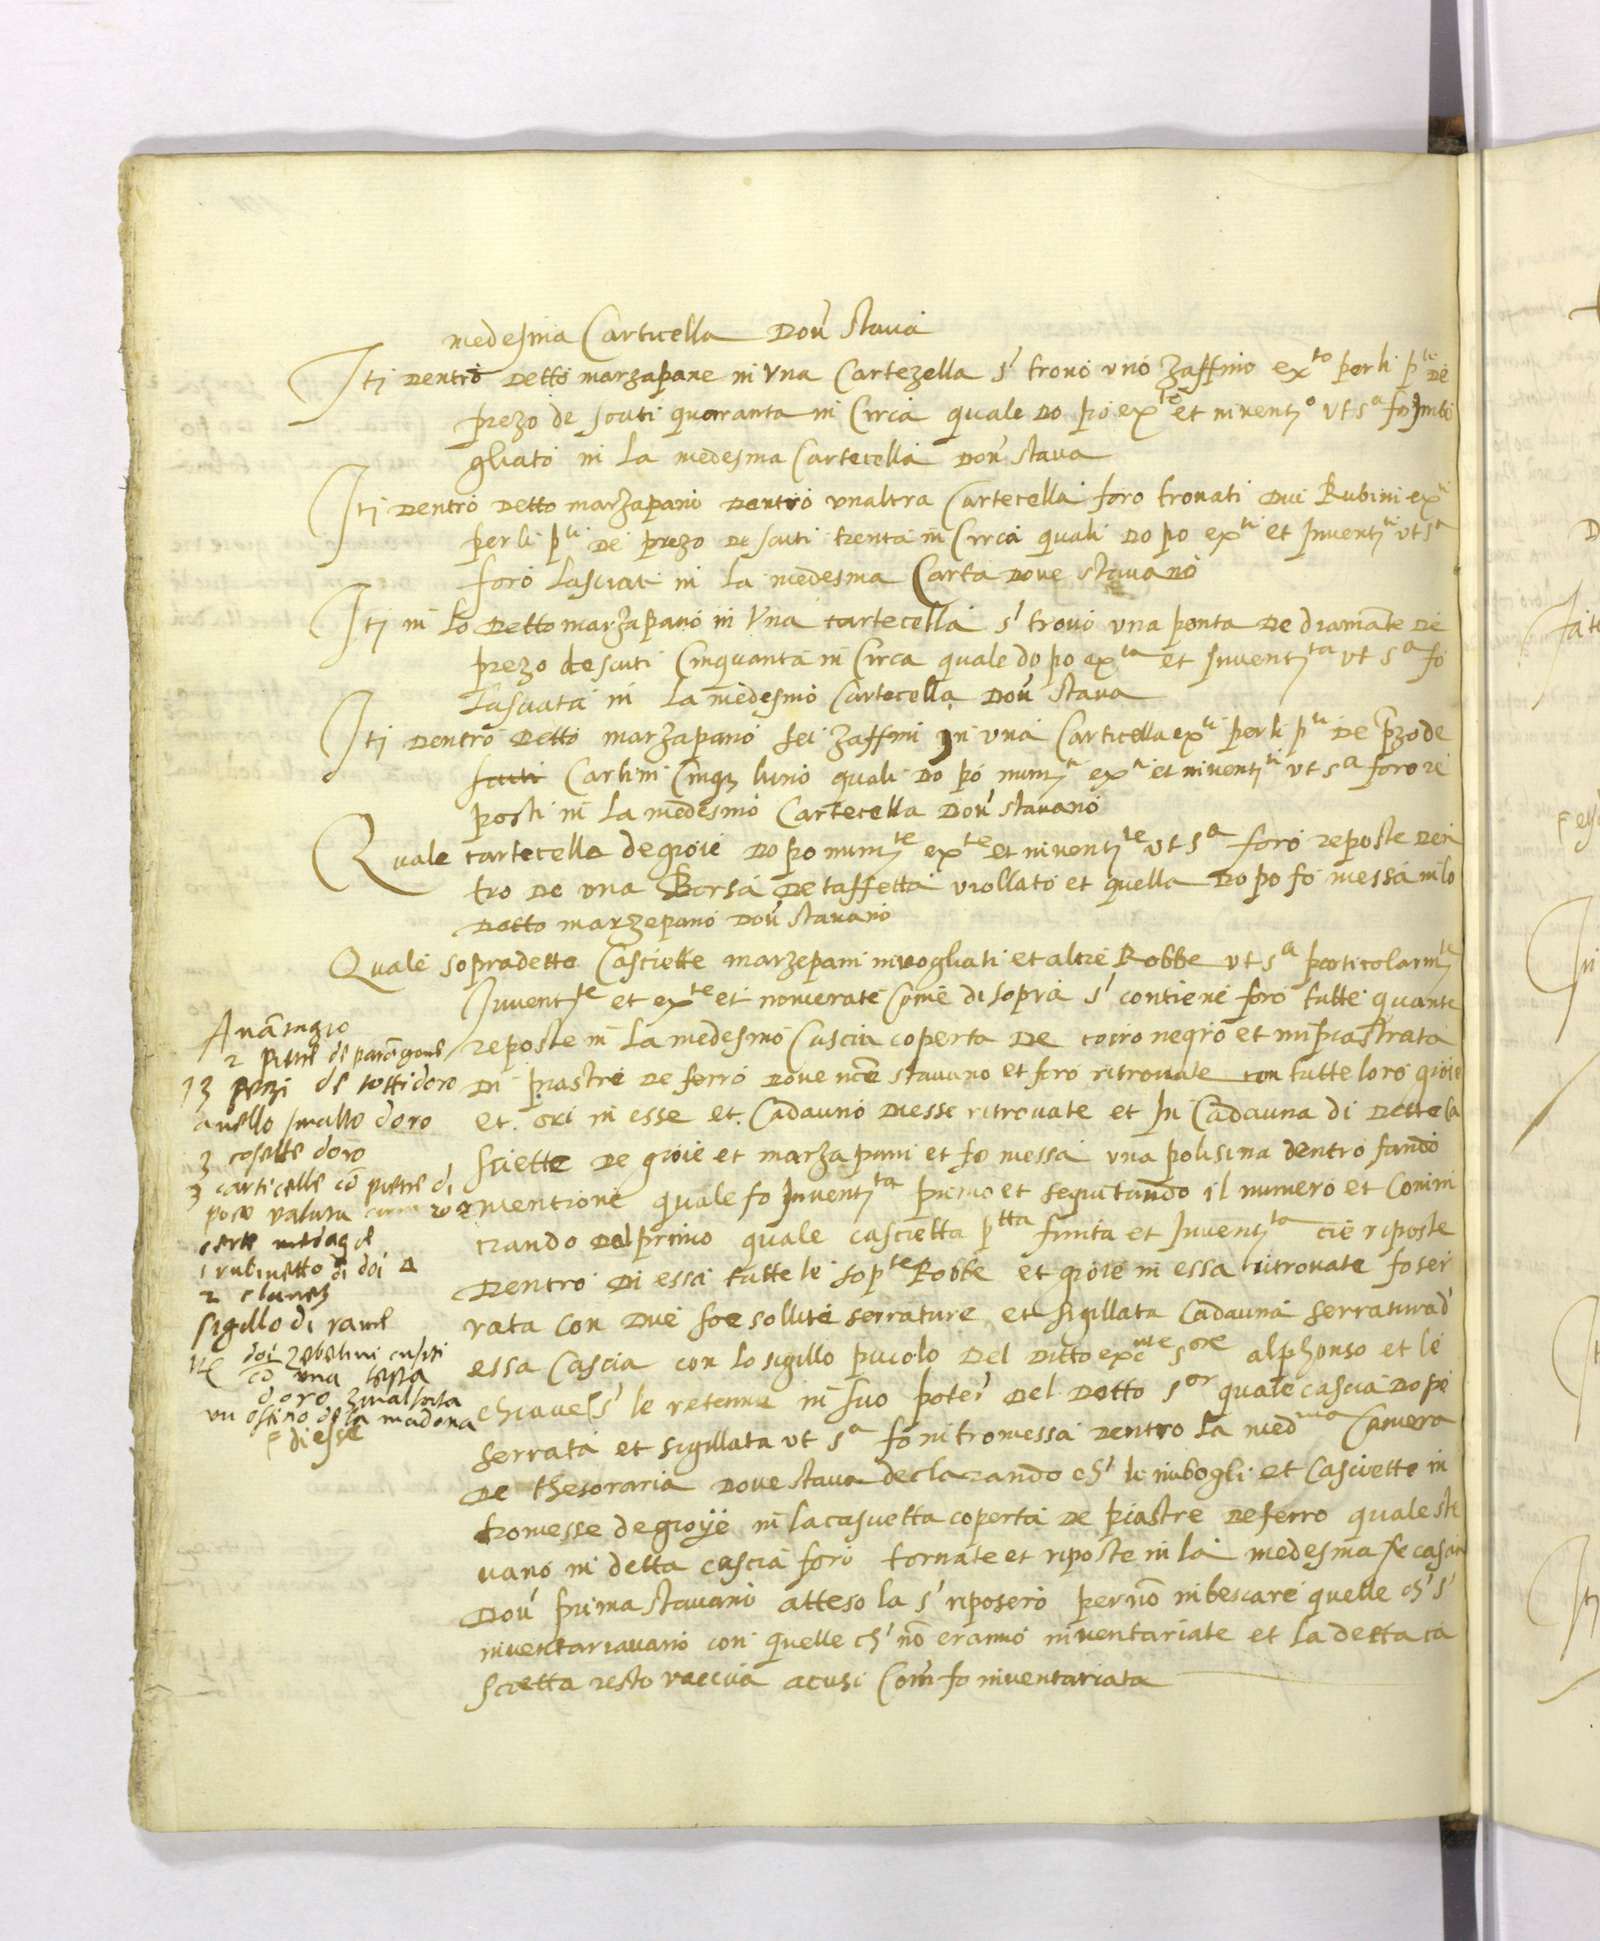 medesma Carticella Dou' staua
Itj Dentro Detto marzapane in Vna Cartezella s' trouo vno zaffino ex^to per li p^ti De
prezo de scuti quaranta in Circa quale Do po ex^to et inuentj^o vt s^a fo Inbo
gliato in la medesma Cartecella Dou' staua
Itj Dentro Detto marzapano Dentro vnaltra Cartecella foro trouati Dui Rubini ex^ti
per li p^ti De prezo De scuti trenta in Circa quali Do po ex^ti et Inuentj^ti vt s^a
foro Lasciati in la medesma Carta Doue stauano
Itj in Lo Detto marzapano in Vna cartecella s' trouo vna ponta De diamāte De
prezo de scuti Cinquanta in Circa quale do po ex^ta et Inuentj^ta vt s^a fo
Lasciata in La medesmo Cartecella Dou' staua
Itj Dentro Detto marzapano sei zaffini In vna Carticella ex^ti per li p^ti De p̄zo de
scuti Carlini Cinqz luno quali Do po numj^ti ex^ti et inuentj^ti vt s^a foro re
posti in La medesmo Cartecella Dou' stauano
Quale cartecelle de gioie Do po numj^te ex^te et inuentj^te vt s^a foro reposte Den
tro De vna Borsa De taffetta viollato et quella Do po fo messa in lo
Detto marzepano Dou' stauano
Quale sopradette Casciette marzepani inuogliati et altre Robbe vt s^a particolarm^te
Inuentj^te et ex^te et nomerate Come di sopra s' contiene foro tutte quante
reposte in La medesmo Cascia coperta De coiro negro et inpiastrata
Di piastre De ferro Doue nc̄e stauano et foro ritrouate con tutte loro gioie
et ori in esse et Cadauno Desse ritrouate et In Cadauna di Dette ca
sciette De gioie et marzapani et fo messa vna polisina dentro fando
mentione quale fo Inuentj^ta primo et sequitando il numero et Comin
ciando Dal primo quale cascietta p^tta finita et Inuentj^ta cie riposte
Dentro Di essa tutte le sop^te Robbe et gioie in essa ritrouate fo ser
rata con Due soe sollite serrature et sigillata Cadauna serratura d'
essa Cascia con lo sigillo piccolo Del Ditto exc^nte s^ore alphonso et le
chiaue s' le retenne in suo poter' Del Detto s^or quale cascia Do po
serrata et sigillata vt s^a fo intromessa Dentro la med^ma Camera
De thesoraria Doue staua declarando ch' le inbogli et Casciette in
tromesse de gioye in la casuetta coperta De piastre De ferro quale sta
uano in detta cascia foro tornate et riposte in la medesma
Dou' prima stauano atteso la s' riposero per nō inbescare quelle ch' s'
inuentariauano con quelle ch' nō eranno inuentariate et la detta ca
scietta resto vaccua acusi Com' fo inuentariata
Auāsagio
2 pietre di parāgone
13 pezzi de tottidoro
anello smalto doro
3 cosette doro
3 carticelle cō pietre di
poco valuta
certe medagle
1 rubinetto di doi Δ
sigillo di rame
doi zebelini cusiti
cō vna testa
doro smaltata
vn ofitio de la madona